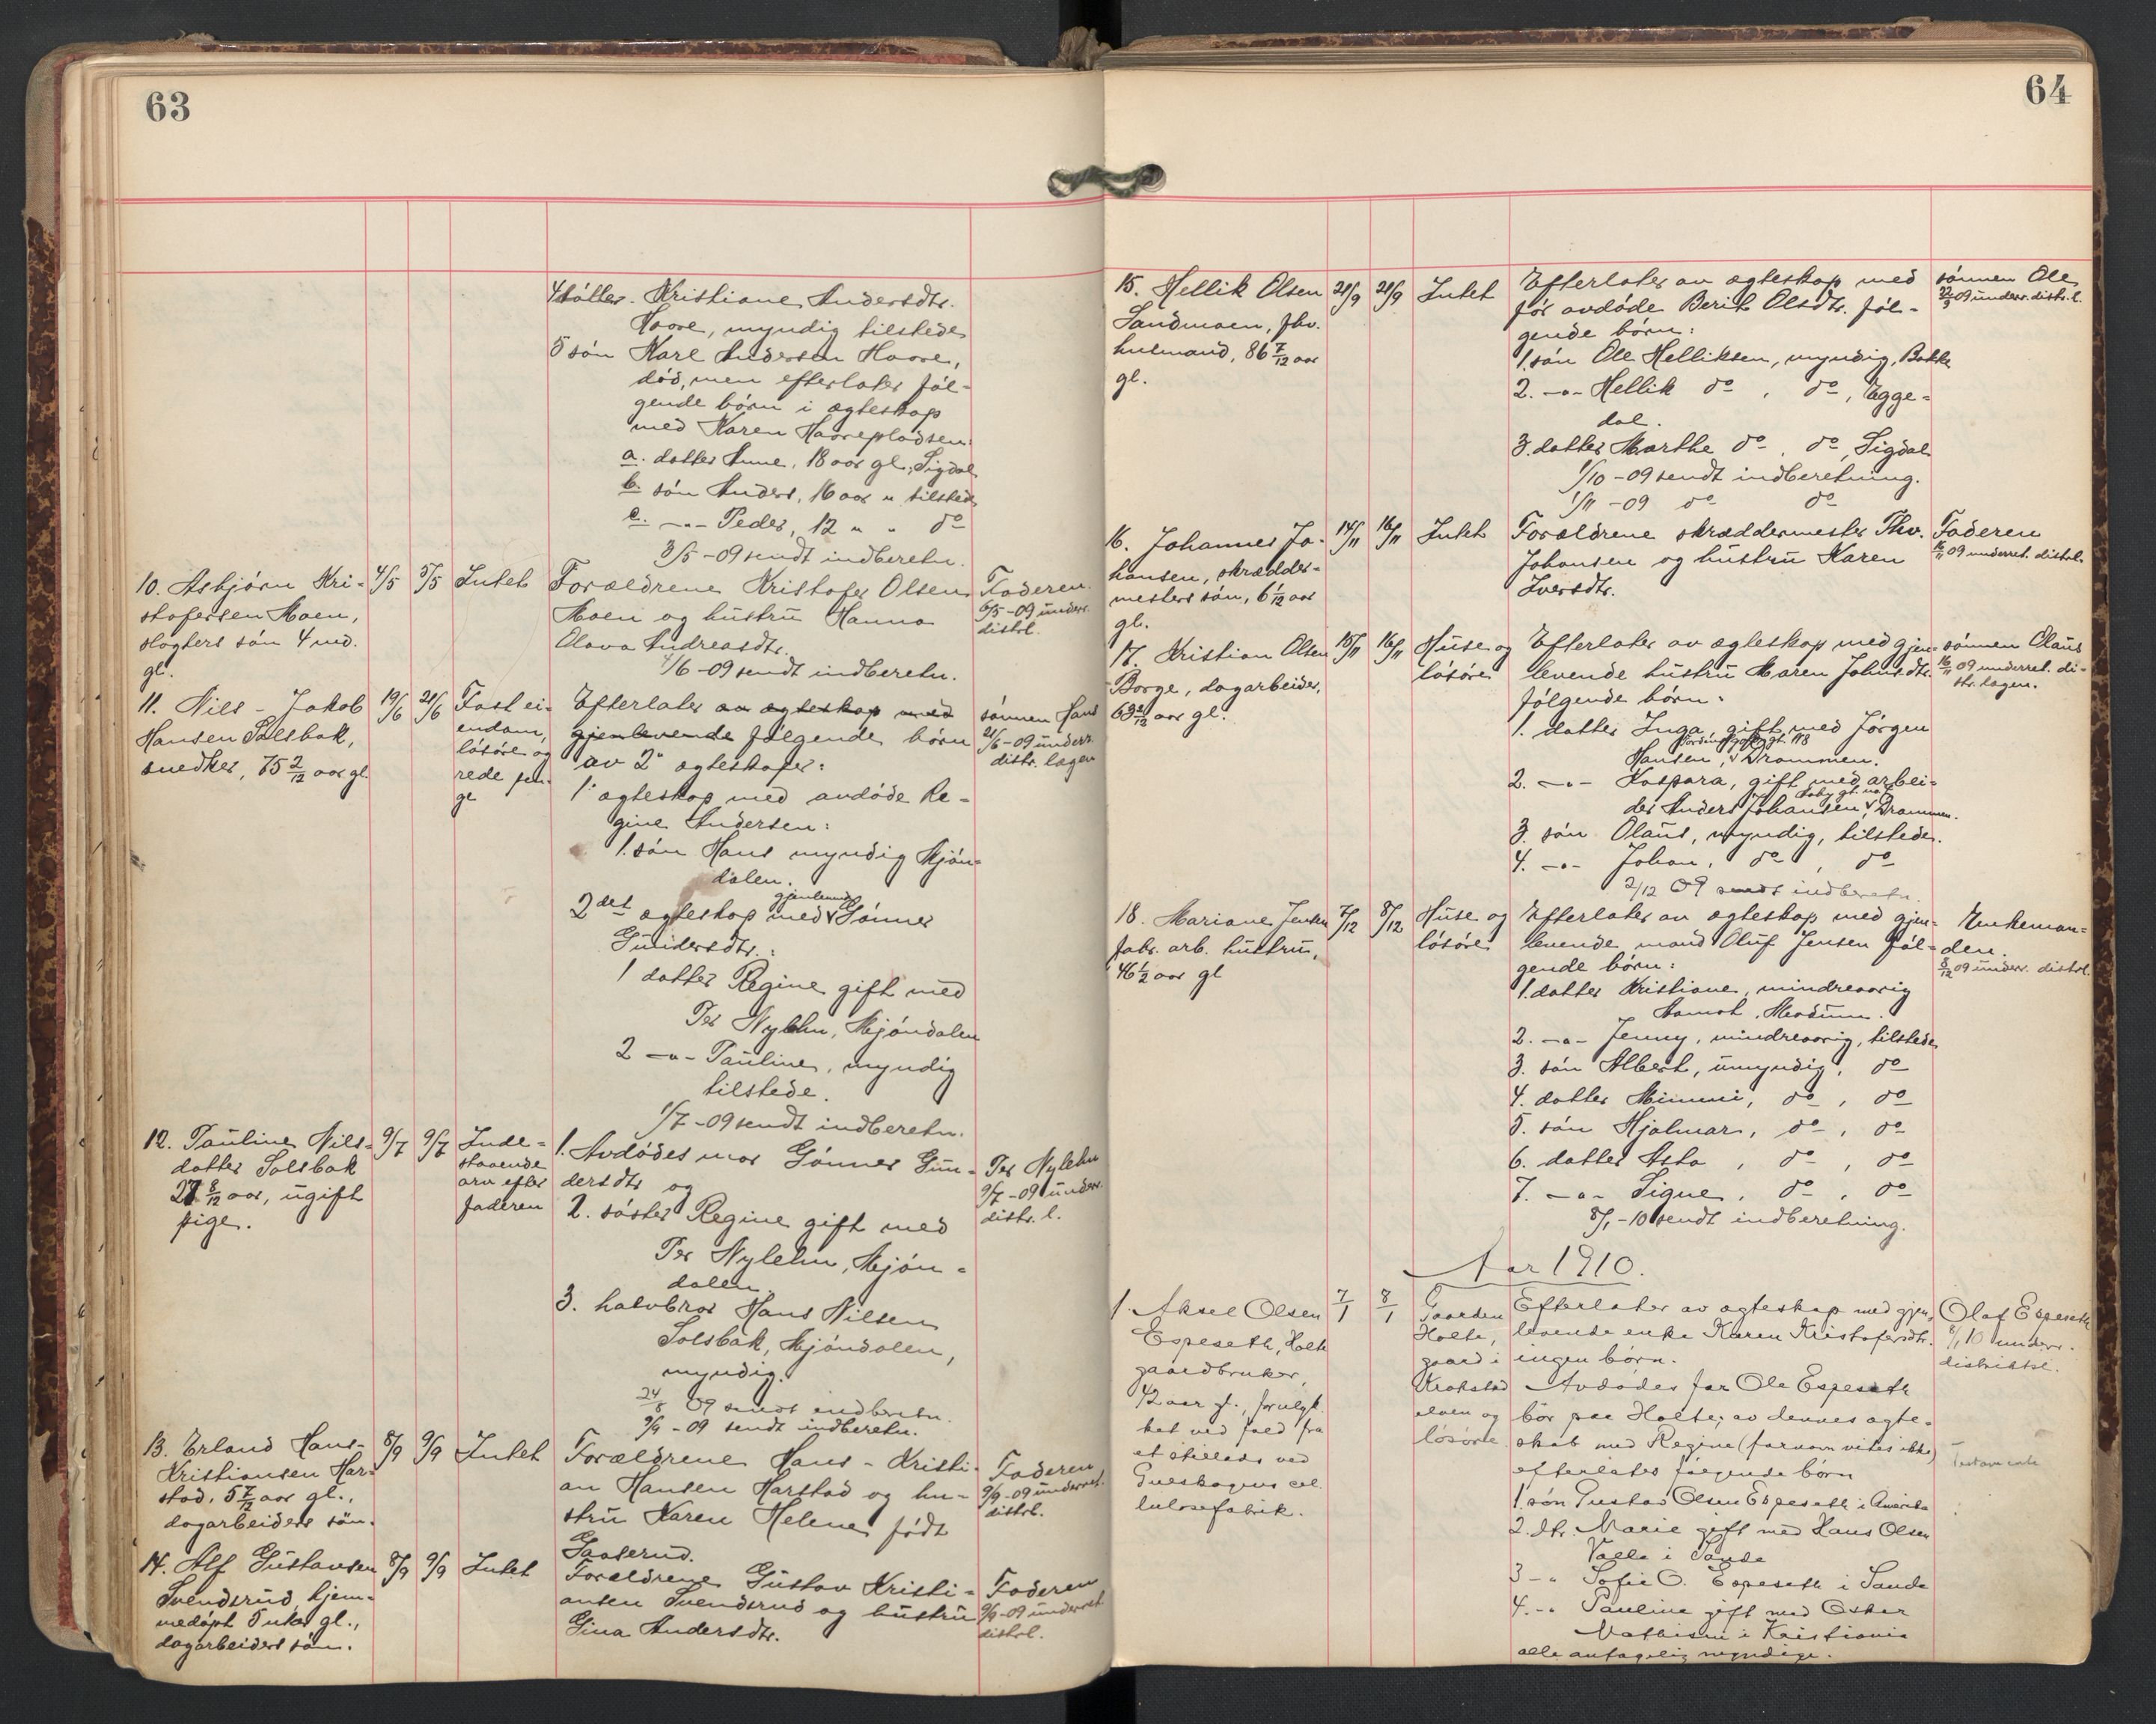 63
4 datter. Kristiane Andersdtr.
Haare, myndig tilstede
5 søn Karl Andersen Haare,
død, men efterlater føl-
gende børn i ægteskap
med Karen Haarepladsen:
a. datter Anne, 18 aar gl., Sigdal
b. søn Anders, 16 aar " tilstede
c. -"- Peder, 12 " " do
3/5 -09 sendt indberetn.
10. Asbjørn Kri-
stofersen Moen,
slagters søn 4 md.
gl.
4/5
5/5
Intet
Forældrene Kristofer Olsen
Moen og hustru Hanna
Olava Andreasdtr.
4/6 -09 sendt indberetn.
Faderen.
6/5 -09 underr.
distrl.
11. Nils - Jakob
Hansen Solsbak,
snedker, 75 2/12 aar gl.
19/6
21/6
Fast ei-
endom,
løsøre og
rede pen-
ge
Efterlater av ægteskap med
gjenlevende følgende børn
av 2de ægteskaper:
1' ægteskap med avdøde Re-
gine Andersen:
1. søn Hans myndig Mjøn-
dalen.
2det ægteskap med gjenlevende Gønner
Gundersdtr.:
1 datter Regine gift med
Per Nylehn, Mjøndalen
2 -"- Pauline, myndig
tilstede.
1/7 -09 sendt indberetn.
sønnen Hans
21/6 -09 underr.
distr. lægen
12. Pauline Nils-
datter Solsbak
27 8/12 aar, ugift
pige.
9/7
9/7
Inde-
staaende
arv efter
faderen
1. Avdødes mor Gønner Gun-
dersdtr og
2. søster Regine gift med
Per Nylehn, Mjøn-
dalen.
3. halvbror Hans Nilsen
Solsbak, Mjøndalen,
myndig.
24/8 09 sendt indberetn.
9/9 -09 sendt indberetn.
Per Nylehn
9/7 -09 underr.
distr. l.
13. Erland Hans-
Kristiansen Har-
stad, 5 7/12 aar gl.,
dagarbeiders søn.
8/9
9/9
Intet
Forældrene Hans - Kristi-
an Hansen Harstad og hu-
stru Karen Helene født
Gaaserud.
Faderen
9/9 -09 underret.
distrl.
14. Alf Gustavsen
Svendsrud, hjem-
medøpt 5 uker gl.,
dagarbeiders søn.
8/9
9/9
Intet
Forældrene Gustav Kristi-
ansen Svendsrud og hustru
Gina Andersdtr.
Faderen
9/9 -09 underret
distrl.
64
15. Hellik Olsen
Sandmoen, fhv.
husmand, 86 7/12 aar
gl.
21/9
21/9
Intet
Efterlater av ægteskap med
før avdøde Berit Olsdtr. føl-
gende børn:
1. søn Ole Helliksen, myndig, Bakke
2. -"- Hellik do , do, Egge-
dal.
3. datter Marthe do , do, Sigdal
1/10 -09 sendt indberetning.
1/11 -09 do do
sønnen Ole
22/9 09 underr. distr. l.
16. Johannes Jo-
hansen, skrædder-
mesters søn, 6 1/12 aar
gl.
14/11
16/11
Intet
Forældrene skræddermester Thv.
Johansen og hustru Karen
Iversdtr.
Faderen
16/11 09 underret. distrl.
17. Kristian Olsen
Borge, dagarbeider,
63 2/12 aar gl.
15/11
16/11
Huse og
løsøre
Efterlater av ægteskap med gjen-
levende hustru Maren Johnsdtr.
følgende børn:
1. datter Inga, gift med Jørgen
Hansen, Drammen.
2. -"- Kaspara, gift med arbei-
der Anders Johansen, Drammen.
3. søn Olaus, myndig, tilstede.
4. -"- Johan, do , do
2/12 09 sendt indberetn.
sønnen Olaus
16/11 09 underret. di-
str. lægen.
18. Mariane Jensen
fabr. arb. hustru,
46 1/2 aar gl
7/12
8/12
Huse og
løsøre
Efterlater av ægteskap med gjen-
levende mand Oluf Jensen føl-
gende børn:
1. datter Kristiane, mindreaarig
Aamot, Modum.
2. -"- Jenny, mindreaarig, tilstede
3. søn Albert, umyndig, do
4. datter Mimmi, do , do
5. søn Hjalmar, do , do
6. datter Asta , do , do
7. -"- Signe , do , do
8/1 -10 sendt indberetning.
Enkeman-
den.
8/12 09 underr. distrl.
Aar 1910.
1. Aksel Olsen
Espeseth, Holte
gaardbruker,
42 aar gl., forulyk-
ket ved fald fra
et stillads ved
Gulskogens cel-
lulosefabrik.
7/1
8/1
Gaarden
Holte,
gaard i
Krokstad
elven og
løsøre
Efterlater av ægteskap med gjen-
levende enke Karen Kristofersdtr.
ingen børn.
Avdødes far Ole Espeseth
bor paa Holte; av dennes ægte-
skab med Regine (farnavn vites ikke)
efterlates følgende børn
1. søn Gustav Olsen Espeseth i Amerika
2. dtr. Marie gift med Hans Olsen
Valle i Sande
3 -" Sofie O. Espeseth i Sande
4. -" Pauline gift med Oskar
Mathisen i Kristiania
alle antagelig myndige.
Olaf Espeseth
8/1 10 underr.
distriktsl.
Testamente